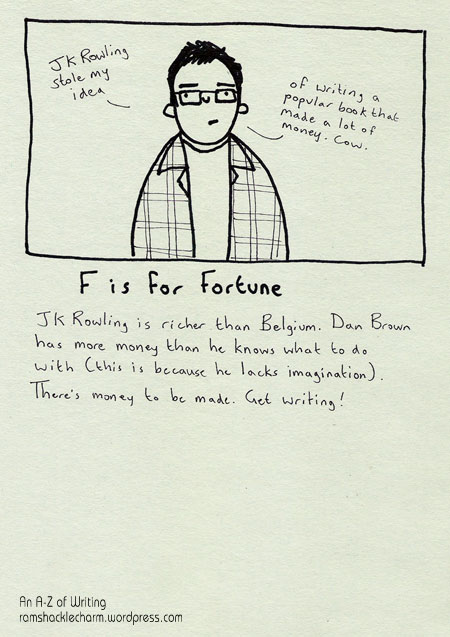 JK Rowling
stole my
idea
of writing a
popular book that
made a lot of
money. Cow.
F is for Fortune
JK Rowling is richer than Belgium. Dan Brown
has more money than he knows what to do
with (this is because he lacks imagination).
There's money to be made. Get writing!
An A-Z of Writing
ramshacklecharm.wordpress.com